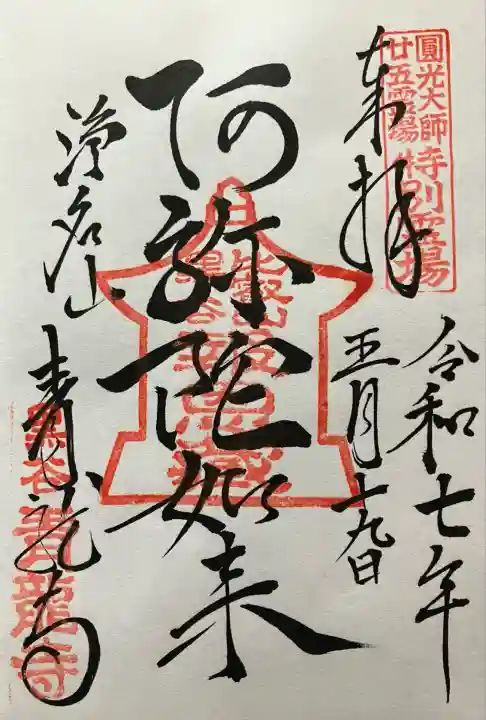 圓光大師
廿五霊場
特別霊場
奉拝
令和七年
五月十九日
阿弥陀如来
比叡山
黒谷
浄名山
青龍寺
黒谷青龍寺